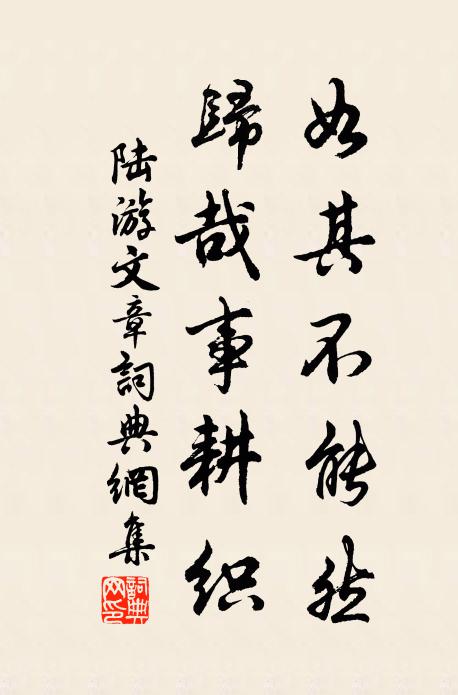 如其不能然
歸哉事耕织
陆游文章詞典網集
詞典
网印